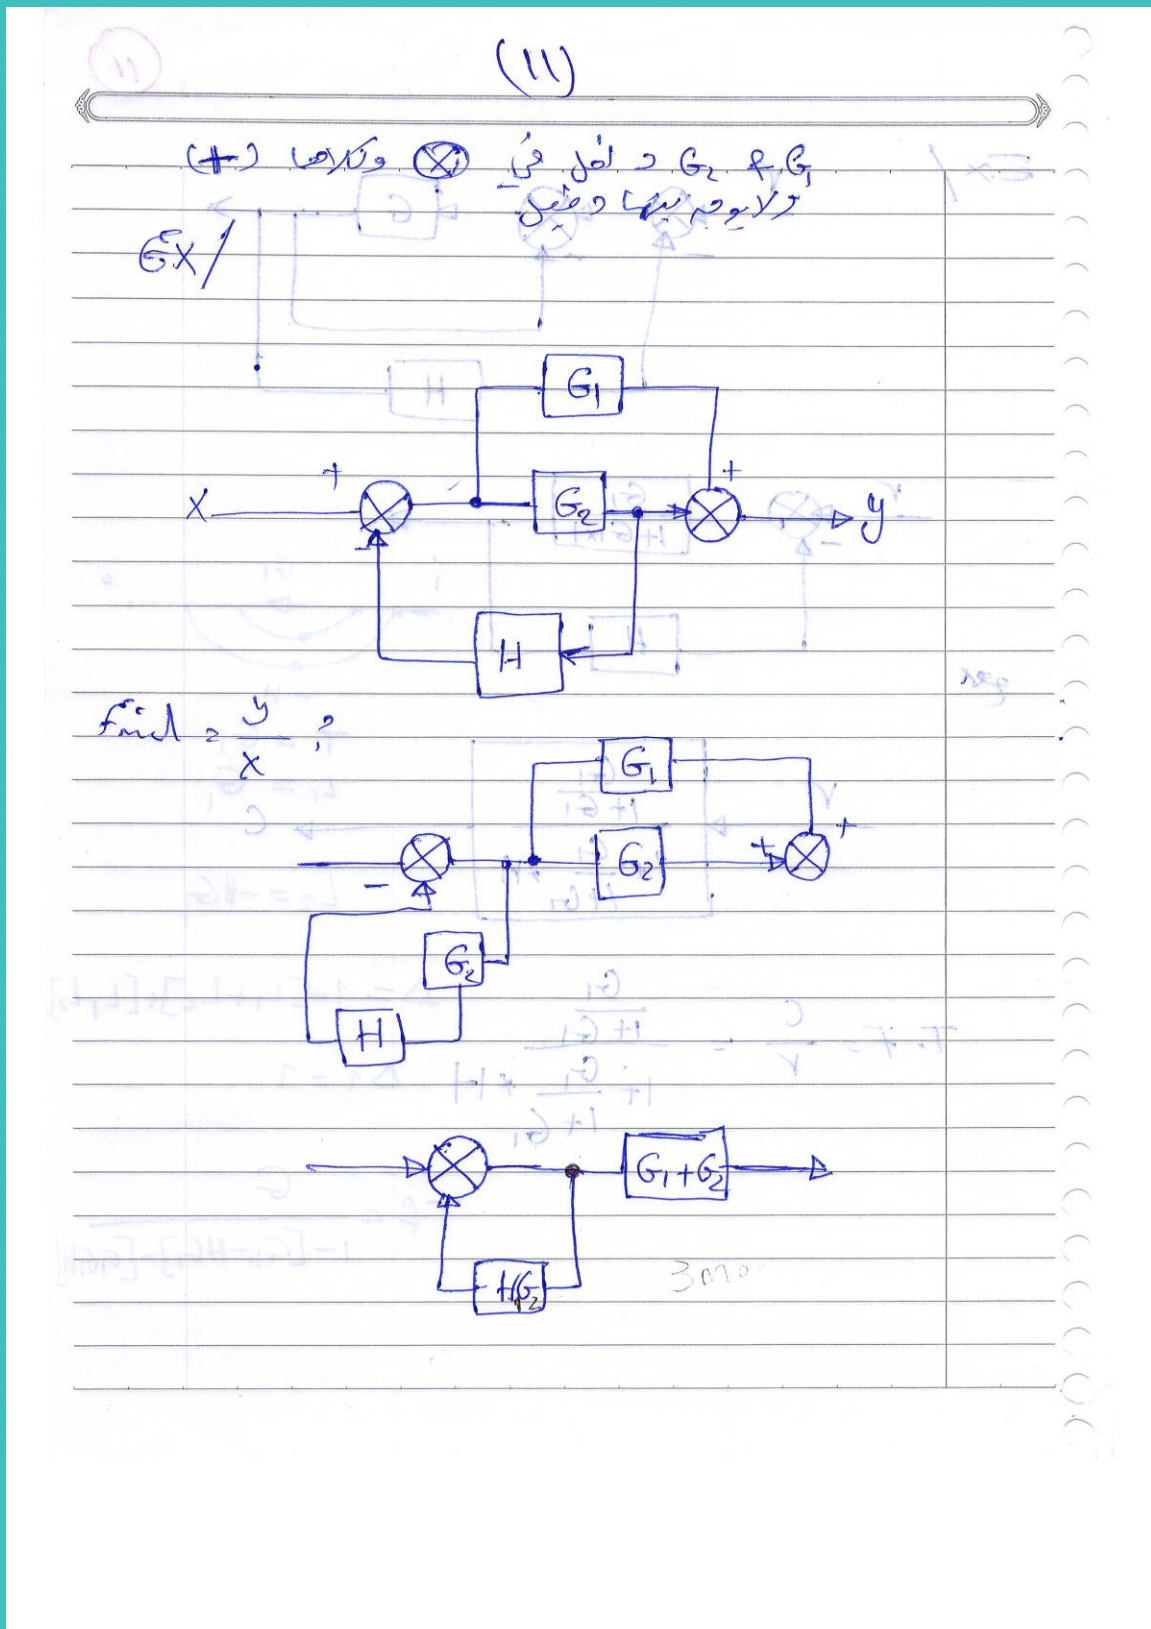 (11)
G₁ & G₂ داخل في ⊗ وكلاهما (+)
ولا يوجد بينهما
Ex/
G₁
+
+
X
G₂
y
-
H
Find = y/x ?
G₁
+
G₂
+
-
G₂
H
G₁+G₂
HG₂